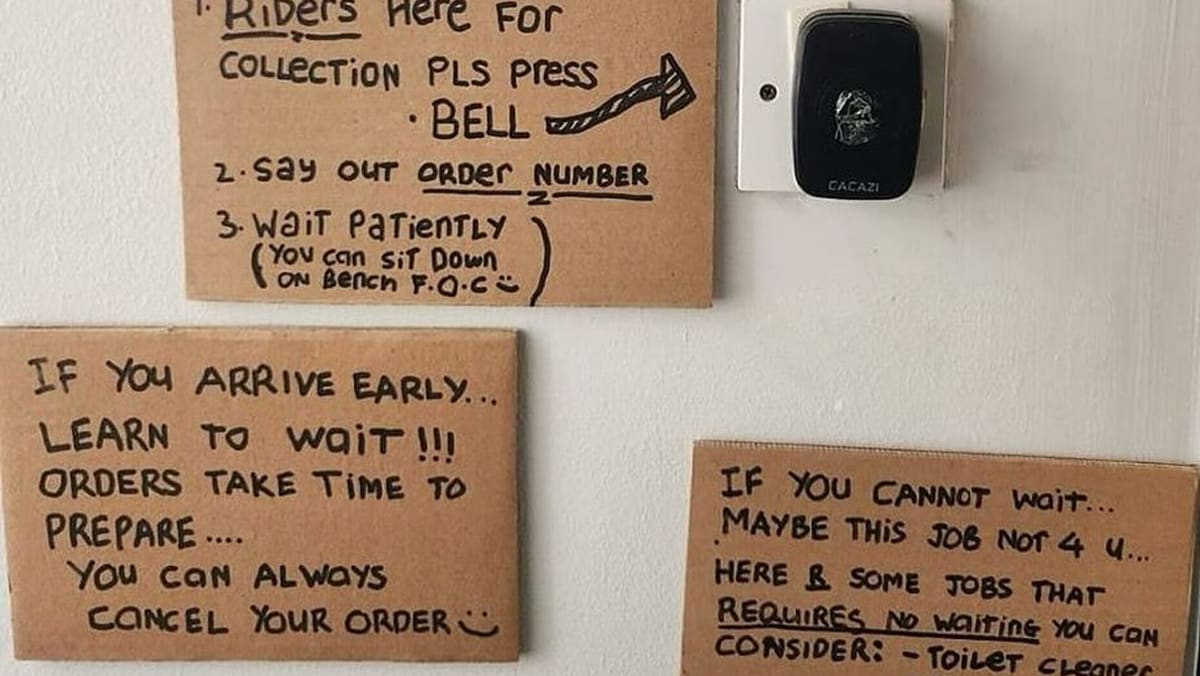 1. RIDERS HERE FOR
COLLECTION PLS PRESS
· BELL
2. SAY OUT ORDER NUMBER
3. WAIT PATIENTLY
(YOU CAN SIT DOWN
ON BENCH F.O.C)
CACAZI
IF YOU ARRIVE EARLY...
LEARN TO WAIT !!!
ORDERS TAKE TIME TO
PREPARE....
YOU CAN ALWAYS
CANCEL YOUR ORDER
IF YOU CANNOT WAIT...
MAYBE THIS JOB NOT 4 U...
HERE R SOME JOBS THAT
REQUIRES NO WAITING YOU CAN
CONSIDER: - TOILET CLEANER